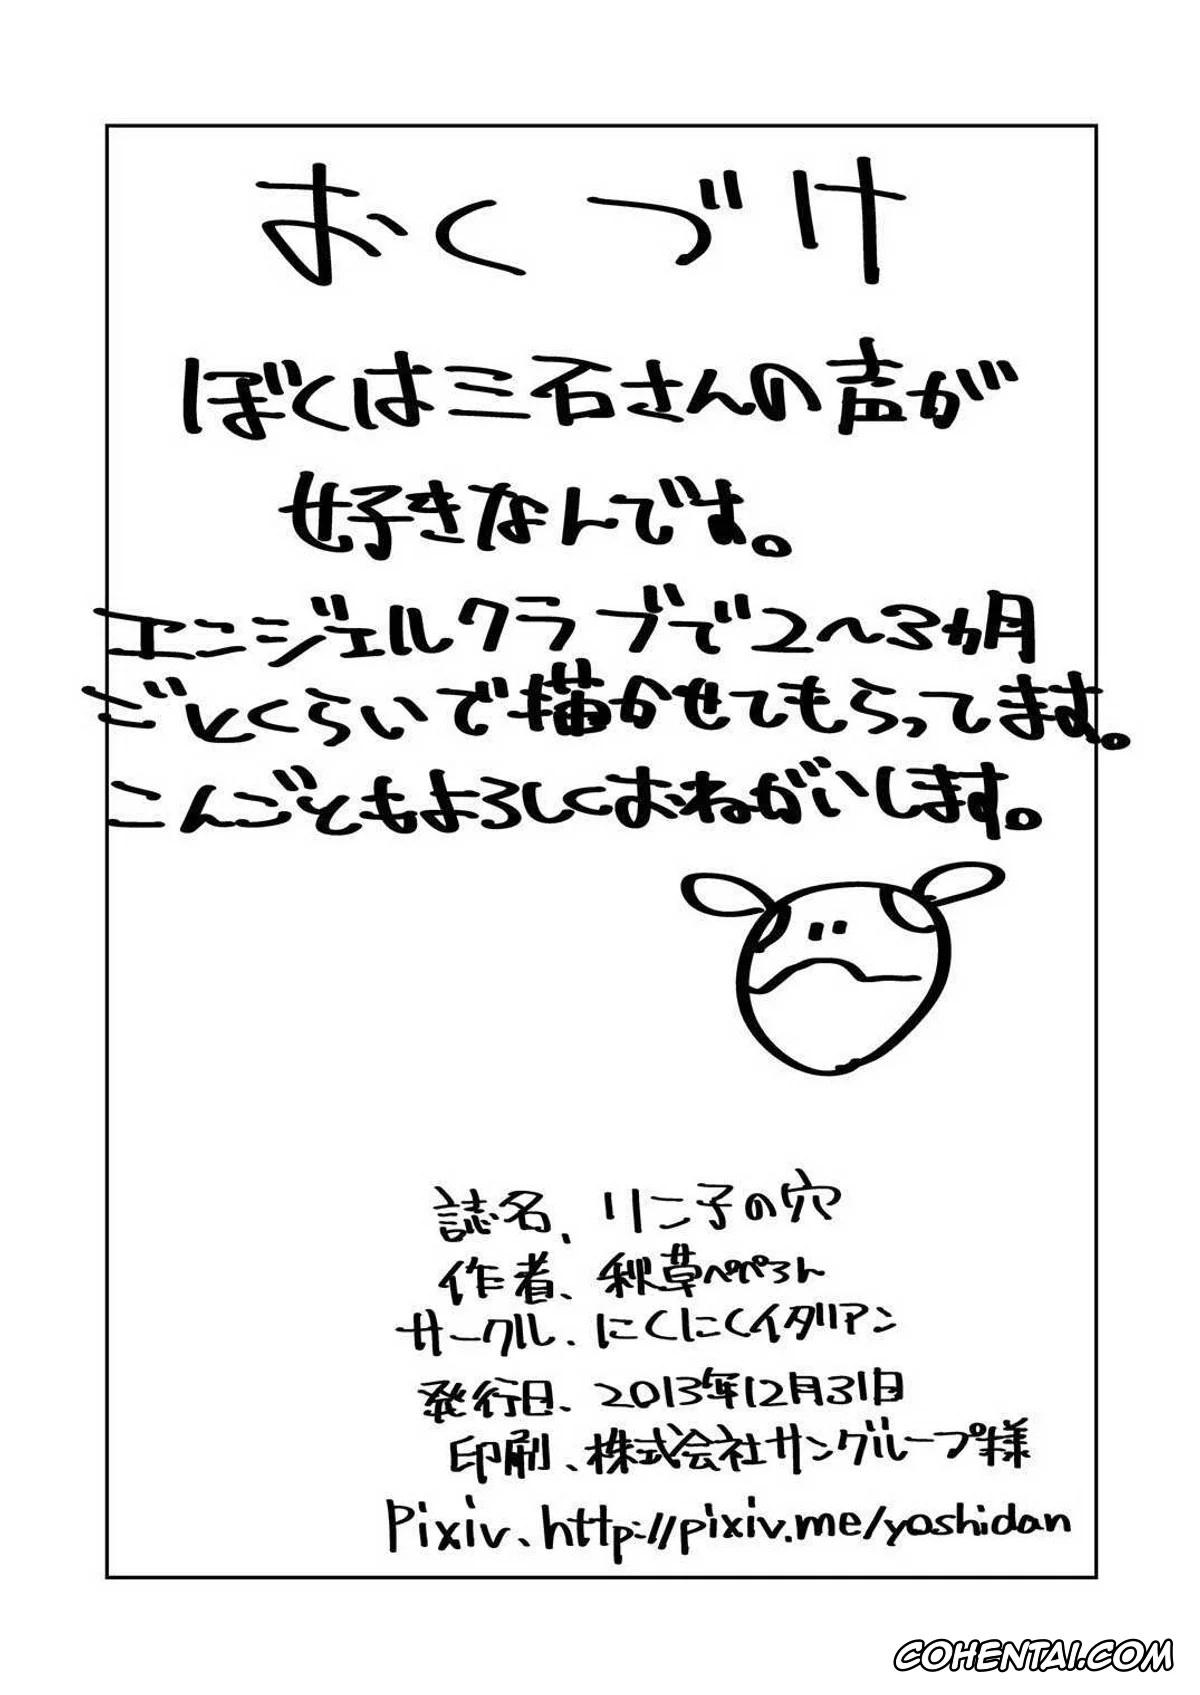 おくづけ
ぼくは三石さんの声が
好きなんです。
エンジェルクラブで2〜3ヵ月
ごとくらいで描かせてもらってます。
こんごともよろしくおねがいします。
誌名、リン子の穴
作者、秋草ぺぺろん
サークル、にくにくイタリアン
発行日、2013年12月31日
印刷、株式会社サングループ様
Pixiv、http://pixiv.me/yoshidan
COHENTAI.COM